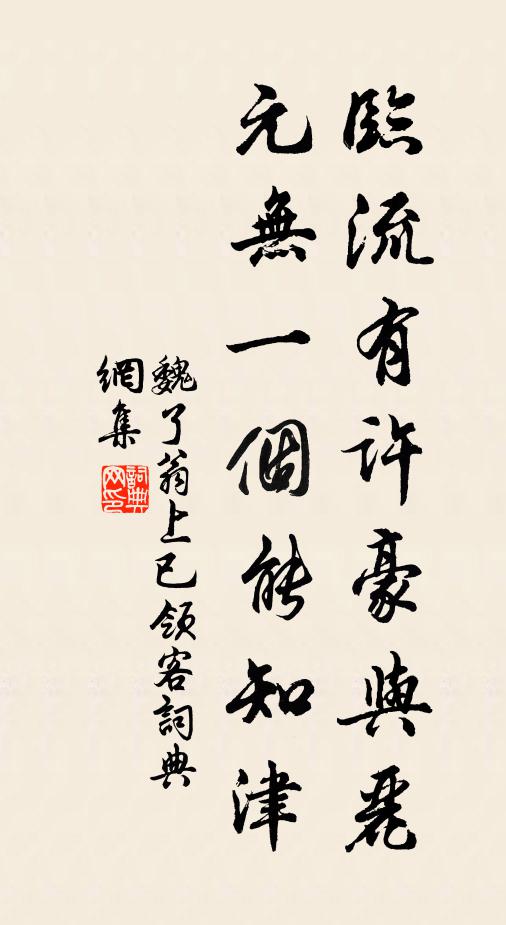 臨流有許豪與麗
元無一個能知津
魏了翁上巳領客詞典
網集
詞典
网印